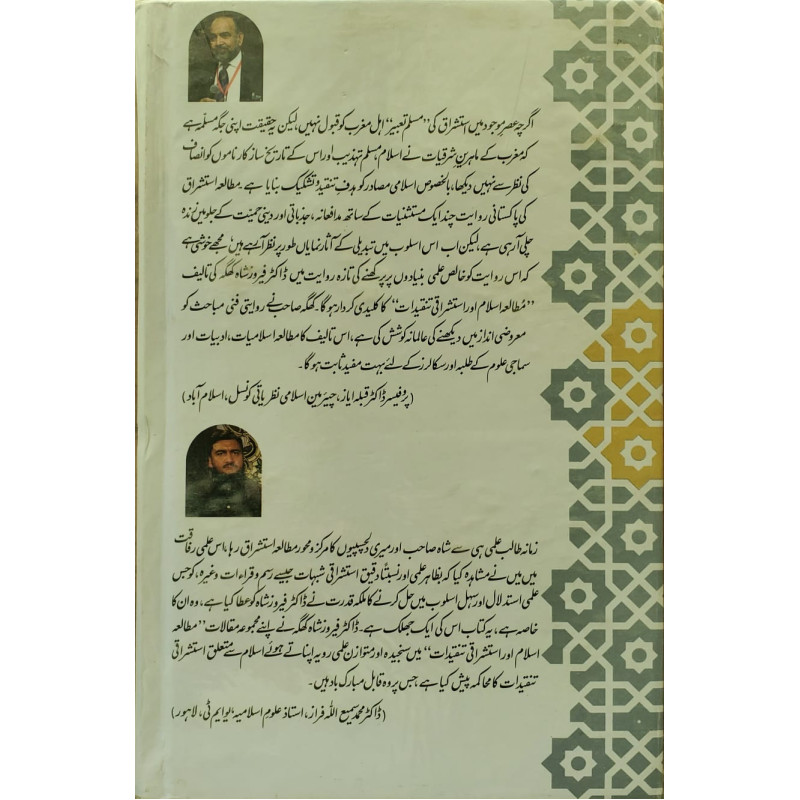 اگرچہ عصرِ موجود میں استشراق کی ’’مسلم تعبیر‘‘ اہل مغرب کو قبول نہیں، لیکن یہ حقیقت اپنی جگہ مسلّمہ ہے
کہ مغرب کے ماہرینِ شرقیات نے اسلام، مسلم تہذیب اور اس کے تاریخ ساز کارناموں کو انصاف
کی نظر سے نہیں دیکھا، بالخصوص اسلامی مصادر کو ہدفِ تنقید و تشکیک بنایا ہے۔ مطالعہ استشراق
کی پاکستانی روایت چند ایک مستثنیات کے ساتھ مدافعانہ، جذباتی اور دینی حمیت کے جلو میں زندہ
چلی آرہی ہے، لیکن اب اس اسلوب میں تبدیلی کے آثار نمایاں طور پر نظر آرہے ہیں۔ مجھے خوشی ہے
کہ اس روایت کو خالص علمی بنیادوں پر پرکھنے کی تازہ روایت میں ڈاکٹر فیروز شاہ کھگہ کی تالیف
’’مُطالعہ اسلام اور استشراقی تنقیدات‘‘ کا کلیدی کردار ہوگا۔ کھگہ صاحب نے روایتی فنی مباحث کو
معروضی انداز میں دیکھنے کی عالمانہ کوشش کی ہے، اس تالیف کا مطالعہ اسلامیات، ادبیات اور
سماجی علوم کے طلبہ اور سکالرز کے لئے بہت مفید ثابت ہوگا۔
(پروفیسر ڈاکٹر قبلہ ایاز، چیئرمین اسلامی نظریاتی کونسل، اسلام آباد)
زمانہ طالب علمی ہی سے شاہ صاحب اور میری دلچسپیوں کا مرکز و محور مطالعہ استشراق رہا، اس علمی رفاقت
میں میں نے مشاہدہ کیا کہ بظاہر علمی اور نسبتاً دقیق استشراقی شبہات جیسے رسم و قراءات وغیرہ، کو جس
علمی استدلال اور سہل اسلوب میں حل کرنے کا ملکہ قدرت نے ڈاکٹر فیروز شاہ کو عطا کیا ہے، وہ ان کا
خاصہ ہے، یہ کتاب اس کی ایک جھلک ہے۔ ڈاکٹر فیروز شاہ کھگہ نے اپنے مجموعہ مقالات ’’مطالعہ
اسلام اور استشراقی تنقیدات‘‘ میں سنجیدہ اور متوازن علمی رویہ اپناتے ہوئے اسلام سے متعلق استشراقی
تنقیدات کا محاکمہ پیش کیا ہے جس پر وہ قابل مبارک باد ہیں۔
(ڈاکٹر محمد سمیع اللہ فراز، استاذ علوم اسلامیہ، یو ایم ٹی، لاہور)